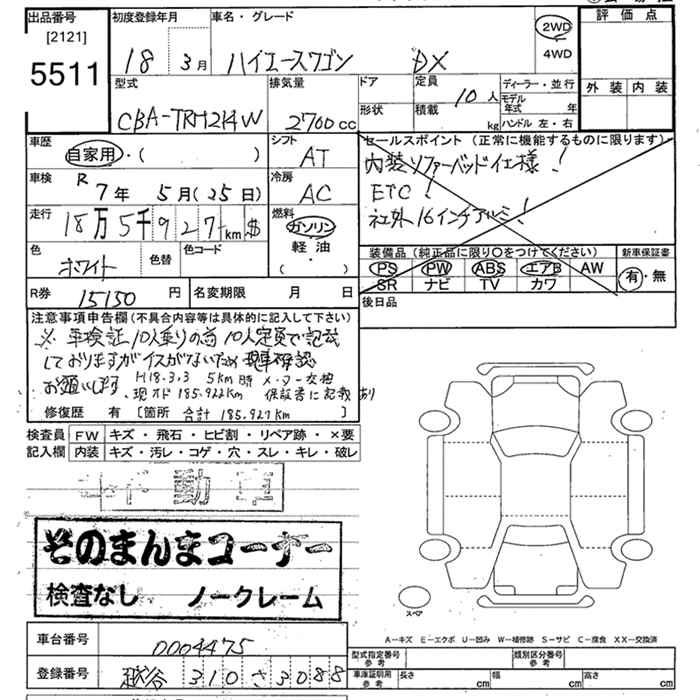 出品番号
[2121]
5511
初度登録年月
18 3月
車名・グレード
ハイエースワゴン DX
2WD
4WD
評価点
外装 内装
型式
CBA-TRH214W
排気量
2700cc
ドア
形状
定員
10人
積載
kg
ディーラー・並行
モデル年式 年
ハンドル 左・右
車歴
自家用・( )
シフト
AT
セールスポイント(正常に機能するものに限ります)
内装ソファーバッド仕様!
ETC!
社外16インチアルミ!
車検
R 7年 5月(25日)
冷房
AC
走行
18万5千927km $
燃料
ガソリン
軽・油
( )
色
ホワイト
色替
色コード
装備品(純正品に限り○をつけてください)
PS PW ABS エアB AW
SR ナビ TV カワ
新車保証書
有・無
R券
15150円
名変期限 月 日
後日品
注意事項申告欄(不具合内容等は具体的に記入して下さい)
※ 車検証10人乗りの為10人定員で記載
しておりますがイスがないため現車確認
お願いします H18.3.3 5km時 メーター交換
現オド185.922km 保証書に記載あり
修復歴 有 [箇所 合計185.927km ]
検査員 FW キズ・飛石・ヒビ割・リペア跡・×要
記入欄 内装 キズ・汚レ・コゲ・穴・スレ・キレ・破レ
動車
そのまんまコーナー
検査なし ノークレーム
スペア
A-キズ E-エクボ U-凹み W-補修跡 S-サビ C-腐食 XX-交換済
車台番号
0004475
登録番号
越谷 310 さ 3088
型式指定番号
参考
類別区分番号
参考
車庫証明用
参考
長さ cm
幅 cm
高さ cm